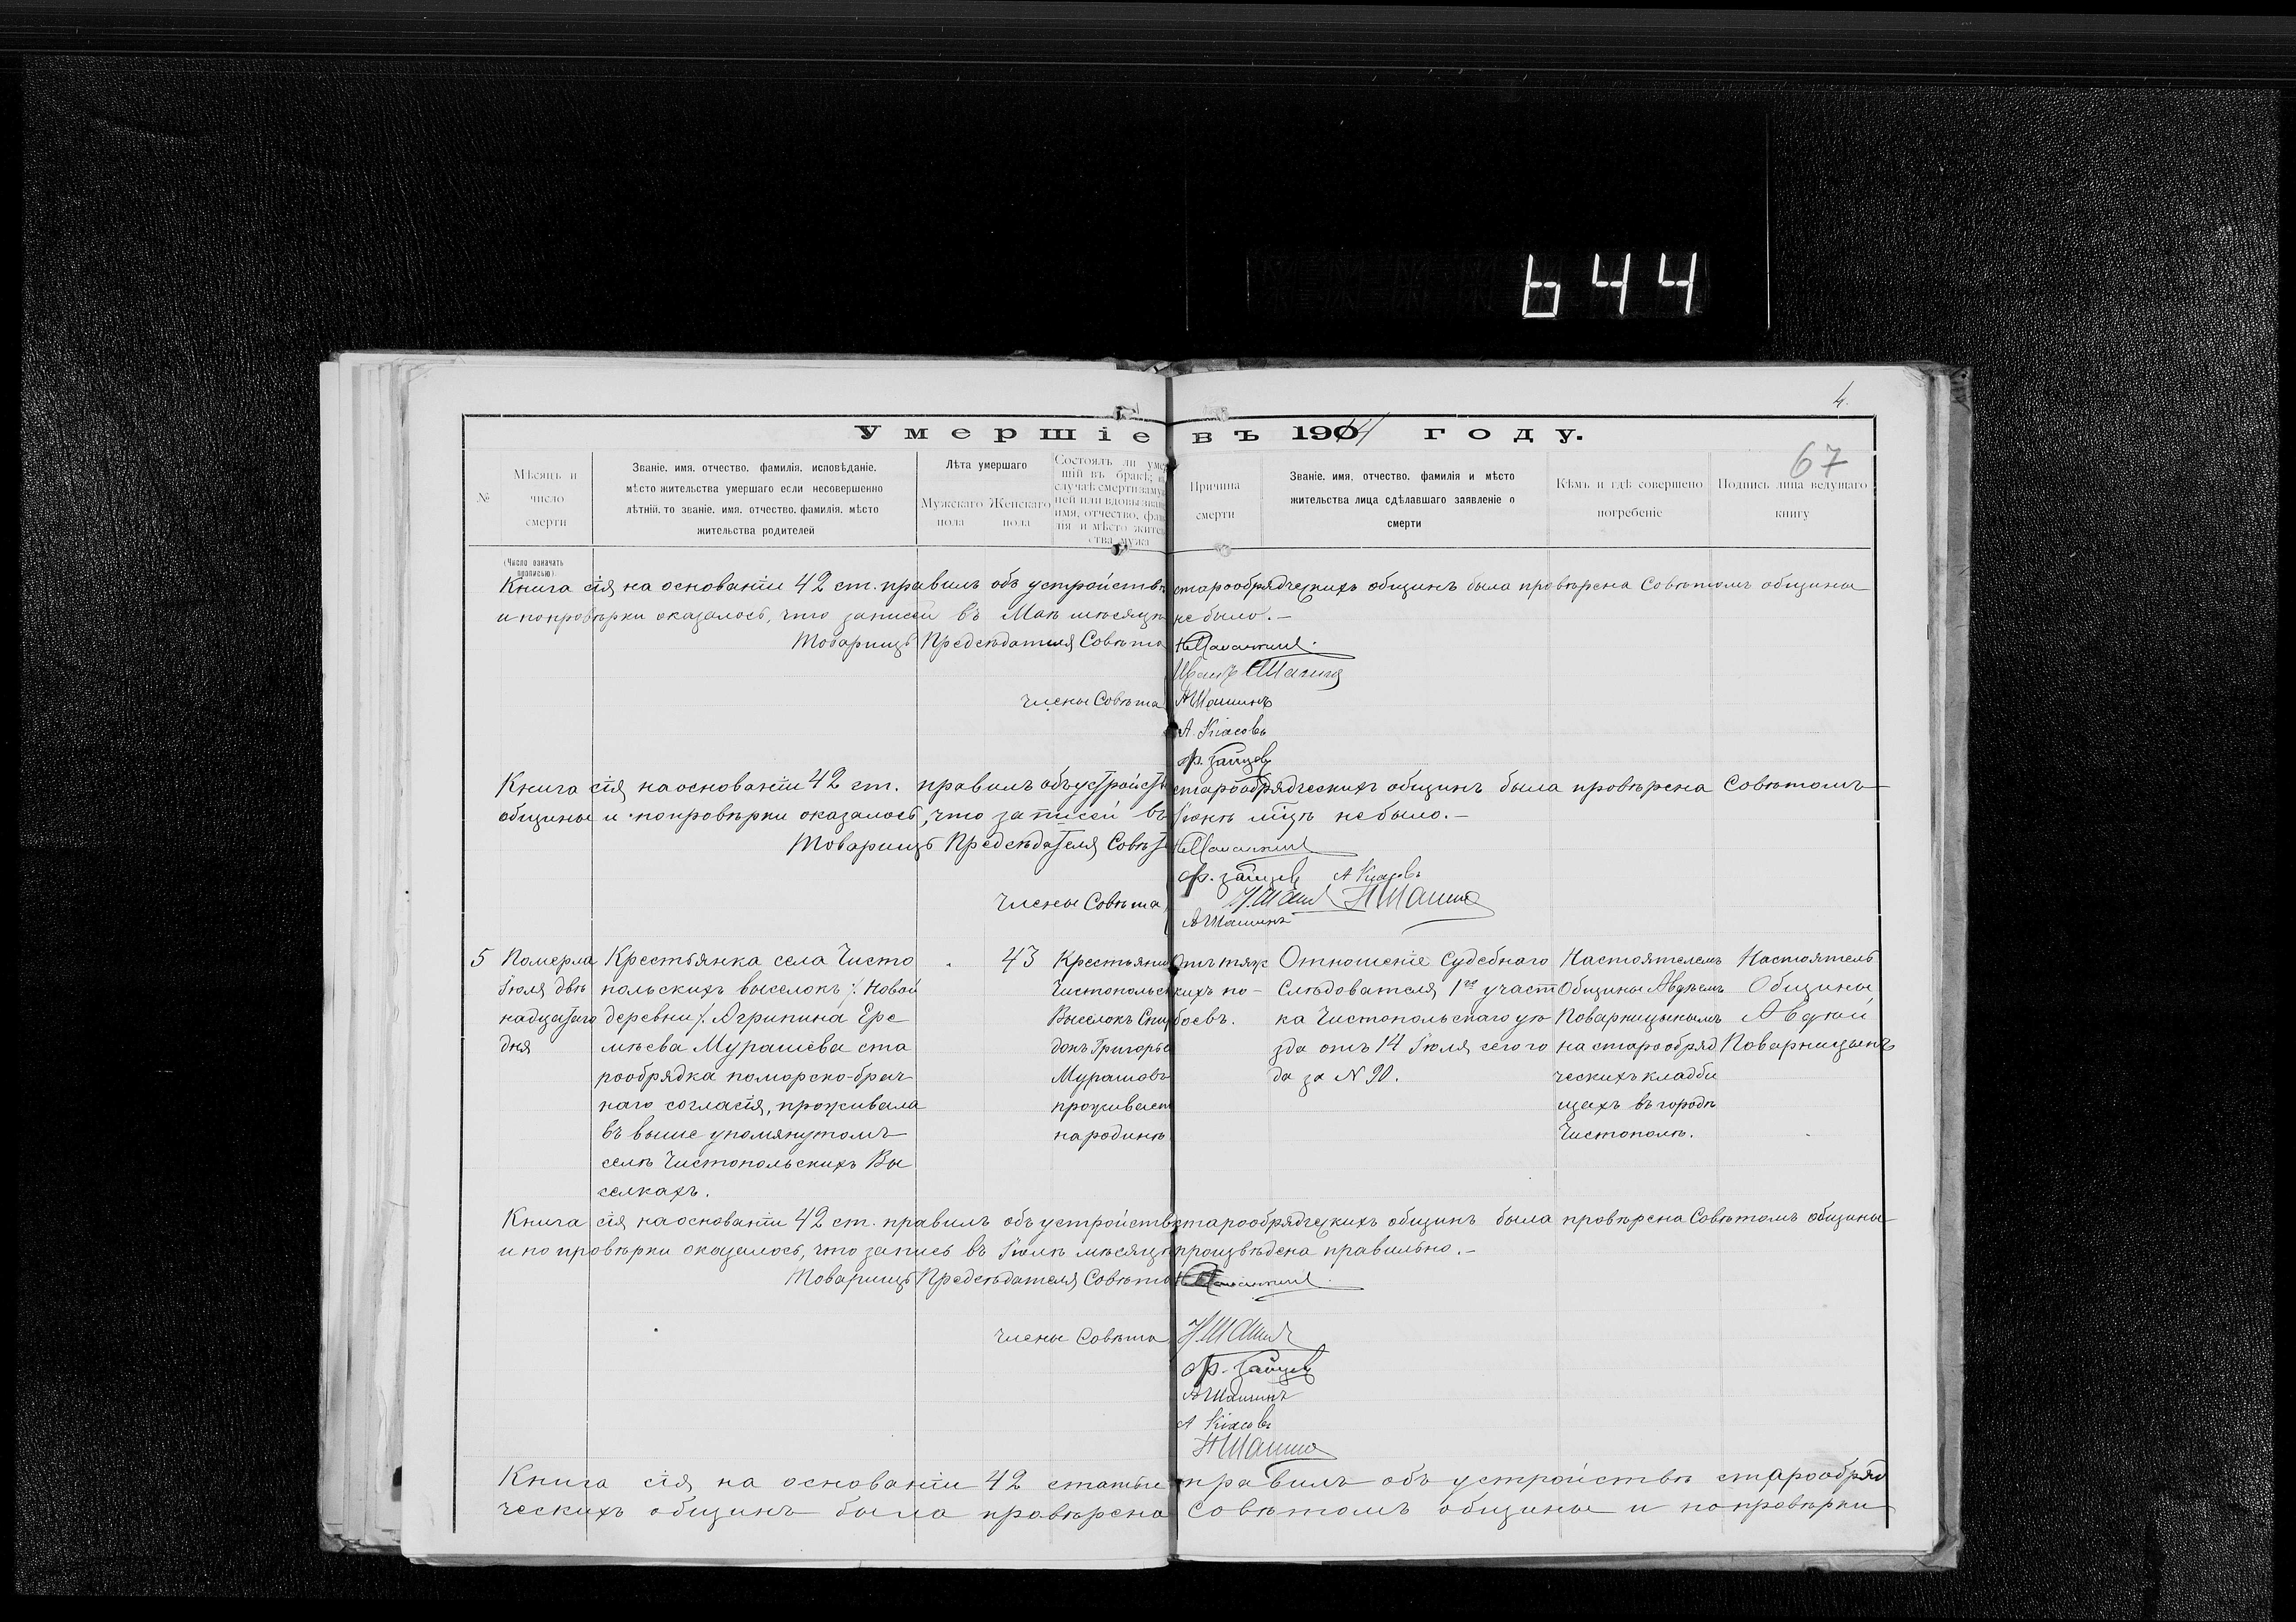 644
4.
Умершіе въ 1914 году.
67
№
Мѣсяцъ и
число
смерти
Званіе. имя. отчество. фамилія. исповѣданіе.
мѣсто жительства умершаго если несовершенно
лѣтній. то званіе. имя. отчество. фамилія. мѣсто
жительства родителей
Лѣта умершаго
Мужскаго
пола
Женскаго
пола
Состоялъ ли умер
шій въ бракѣ;
случаѣ смерти заму
ней или вдовы зван
имя, отчество, фам
ія и мѣсто жител
ства мужа
Причина
смерти
Званіе. имя, отчество, фамилія и мѣсто
жительства лица сдѣлавшаго заявленіе о
смерти
Кѣмъ и гдѣ совершено
погребеніе
Подпись лица ведущаго
книгу
(Число означать
прописью)
Книга сія на основаніи 42 ст. правилъ объ устройствѣ старообрядческихъ общинъ была провѣрена Совѣтомъ общины
и по провѣрки оказалось, что записей въ Маѣ мѣсяцѣ не было.-
Товарищъ Предсѣдателя Совѣта
Иванъ Шашинъ
Члены Совѣта А Шашинъ
А. Кіасовъ
Ф. Зайцевъ
Книга сія на основаніи 42 ст. правилъ объ устройствѣ старообрядческихъ общинъ была провѣрена Совѣтомъ
общины и по провѣрки оказалось, что записей въ Іюнѣ мцѣ не было.-
Товарищъ Предсѣдателя Совѣта
Ф. Зайцевъ А Кіасовъ
Члены Совѣта
А Шашинъ
5
Померла
Іюля двѣ
надцатаго
дня
Крестьянка села Чисто
польскихъ выселокъ /. Новой
деревни /. Агрипина Ере
мѣева Мурашева ста
рообрядка поморско-брач
наго согласія, проживала
въ выше упомянутомъ
селѣ Чистопольскихъ Вы
селкахъ.
43
Крестьянин
Чистопольс
Выселокъ Спи
донъ Григорье
Мурашовъ
проживает
на родинѣ
Отъ тяж
кихъ по-
боевъ.
Отношеніе Судебнаго
Слѣдователя 1го участ
ка Чистопольскаго уѣ
зда отъ 14 Іюля сего го
да за N 90.
Настоятелемъ
Общины Авдѣемъ
Поварницынымъ
на старообряд
ческихъ кладби
щахъ въ городѣ
Чистополѣ.
Настоятель
Общины
Авдѣй
Поварницынъ
Книга сія на основаніи 42 ст. правилъ объ устройствѣ старообрядческихъ общинъ была провѣрена Совѣтомъ общины
и по провѣрки оказалось, что запись въ Іюлѣ мѣсяцѣ произвѣдена правильно.-
Товарищъ Предсѣдателя Совѣта
Члены Совѣта
Ф. Зайцевъ
А Шашинъ
А Кіасовъ
Книга сія на основаніи 42 статьи правилъ объ устройствѣ старообряд
ческихъ общинъ была провѣрена Совѣтомъ общины и по провѣрки